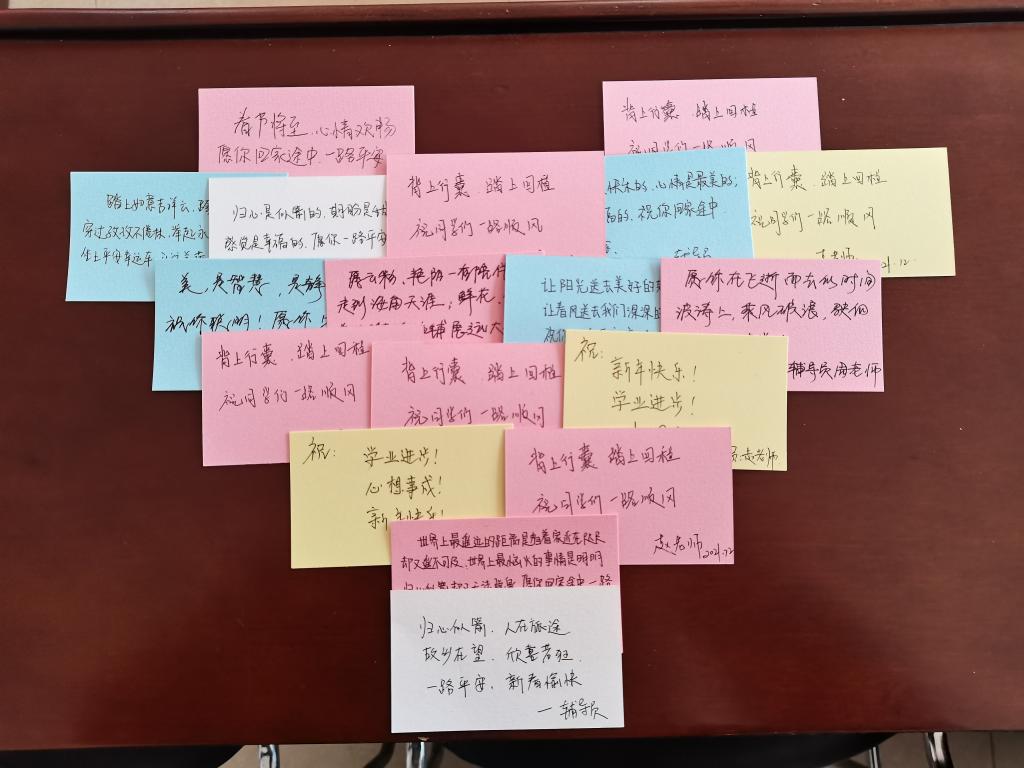 春节将至、心情欢畅
愿你回家途中、一路平安
背上行囊 踏上回程
祝同学们一路顺风
踏上如意吉祥云,踏
归心是似箭的,
感觉是幸福的,愿你一路平安
背上行囊 踏上回程
祝同学们一路顺风
快乐的,心情是最美的;
福的,祝你回家途中
辅导员
背上行囊 踏上回程
祝同学们一路顺风
赵老师
2021.12
美,是智慧,是静
祝你聪明!愿你
走到海角天涯;鲜花、
铺展远大
让阳光送去美好的
让春风送去我们深深的
祝你
愿你在飞逝而去的时间
波涛上,乘风破浪,驶向
辅导员周老师
背上行囊 踏上回程
祝同学们一路顺风
背上行囊 踏上回程
祝同学们一路顺风
祝:
新年快乐!
学业进步!
赵老师
祝:
学业进步!
心想事成!
新年快乐!
背上行囊 踏上回程
祝同学们一路顺风
赵老师
2021.12
世界上最遥远的距离是看着家近在咫尺
却又遥不可及,世界上最恼火的事情是明明
归心似箭,人在旅途
故乡在望,欣喜若狂
一路平安,新春愉快
一辅导员